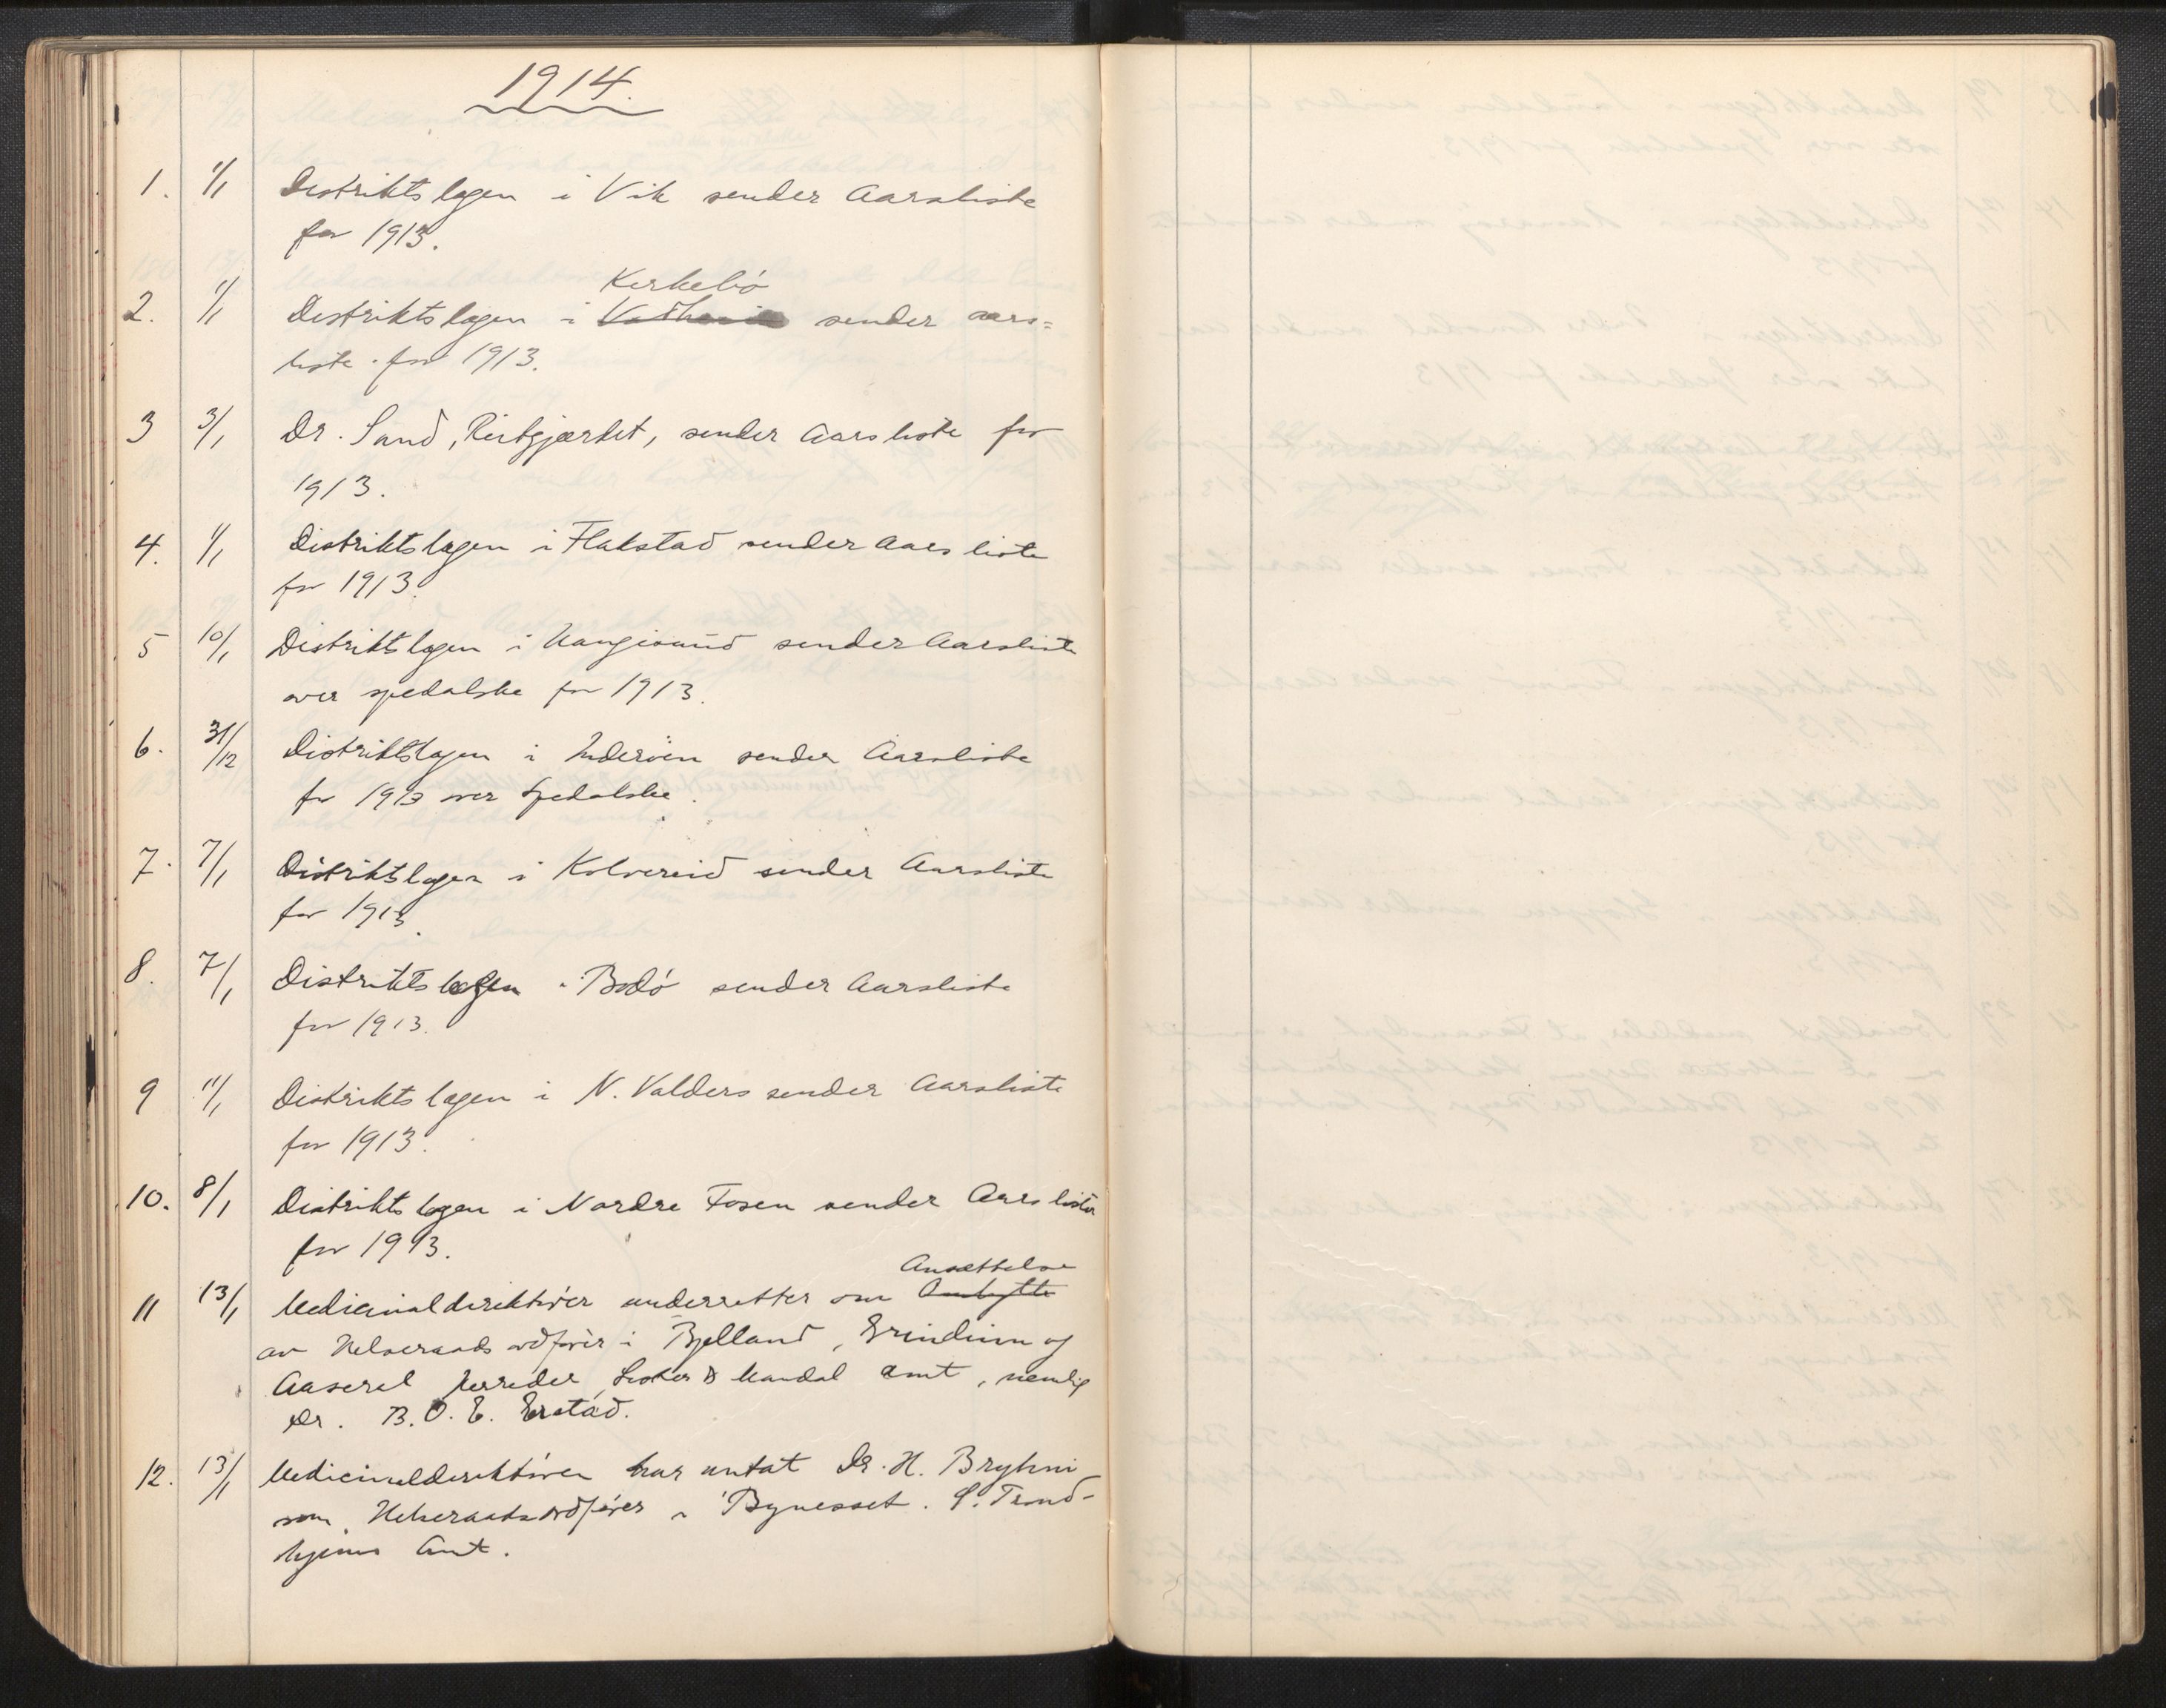 1914.
1. 1/1 Distriktslægen i Vik sender Aarsliste
for 1913.
Kirkebö
2. 1/1 Distriktslægen i sender aars=
liste for 1913.
3 3/1 Dr. Sand, Reitgjærdet, sender Aarsliste for
1913.
4. 1/1 Distriktslægen i Flakstad sender Aarsliste
for 1913.
5 10/1 Distriktslægen i Haugesund sender Aarsliste
over spedalske for 1913.
6. 31/12 Distriktslægen i Inderöen sender Aarsliste
for 1913 over Spedalske.
7. 7/1 Distriktslægen i Kolvereid sender Aarsliste
for 1913.
8. 7/1 Distriktslægen i Bodó sender Aarsliste
for 1913.
9 11/1 Distriktslægen i N. Valders sender Aarsliste
for 1913.
10. 8/1 Distriktslægen i Nordre Fosen sender Aarslister
for 1913.
Ansættelse
11 13/1 Medicinaldirektören underretter om Ombytte
av Helseraadsordförer i Bjelland, Grindum og
Aaseral herreder, Lister & Mandal amt, nemlig
Dr. B. O. E. Erstad.
12. 13/1 Medicinaldirektören har antat Dr. H. Bryhni
som Helseraadsordförer i Bynesset. S. Trond-
hjems Amt.